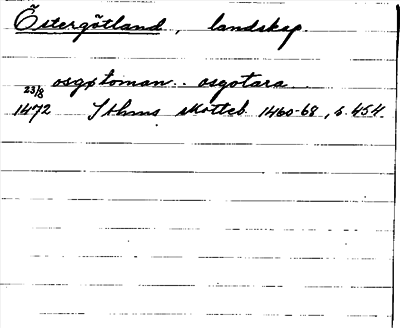 Östergötland, landskap.
osgøtoman - osgotara
23/8
1472 Sthms skotteb. 1460-68, s. 454.